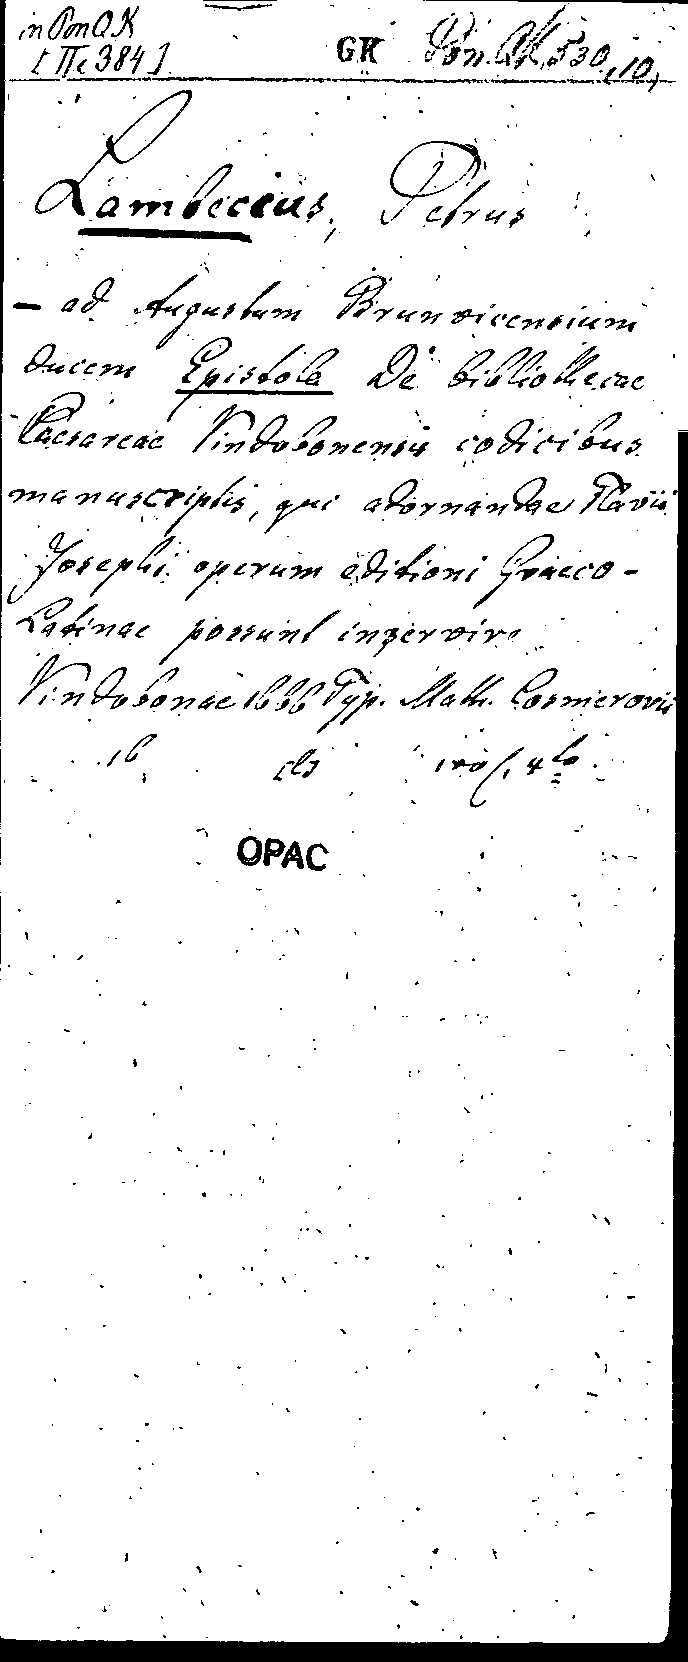 in Pon Q K
[IIc 384]
GK Pon. QK 530,10,
Lambecius, Petrus
– ad Augustum Brunvicensium
ducem Epistola De bibliothecae
Caesareae Vindobonensis codicibus
manuscriptis, qui adornandae Flavii
Josephi operum editioni Graeco-
Latinae possunt inservire
Vindobonae 1666 Typ. Math. Cosmerovii
16
4to
OPAC